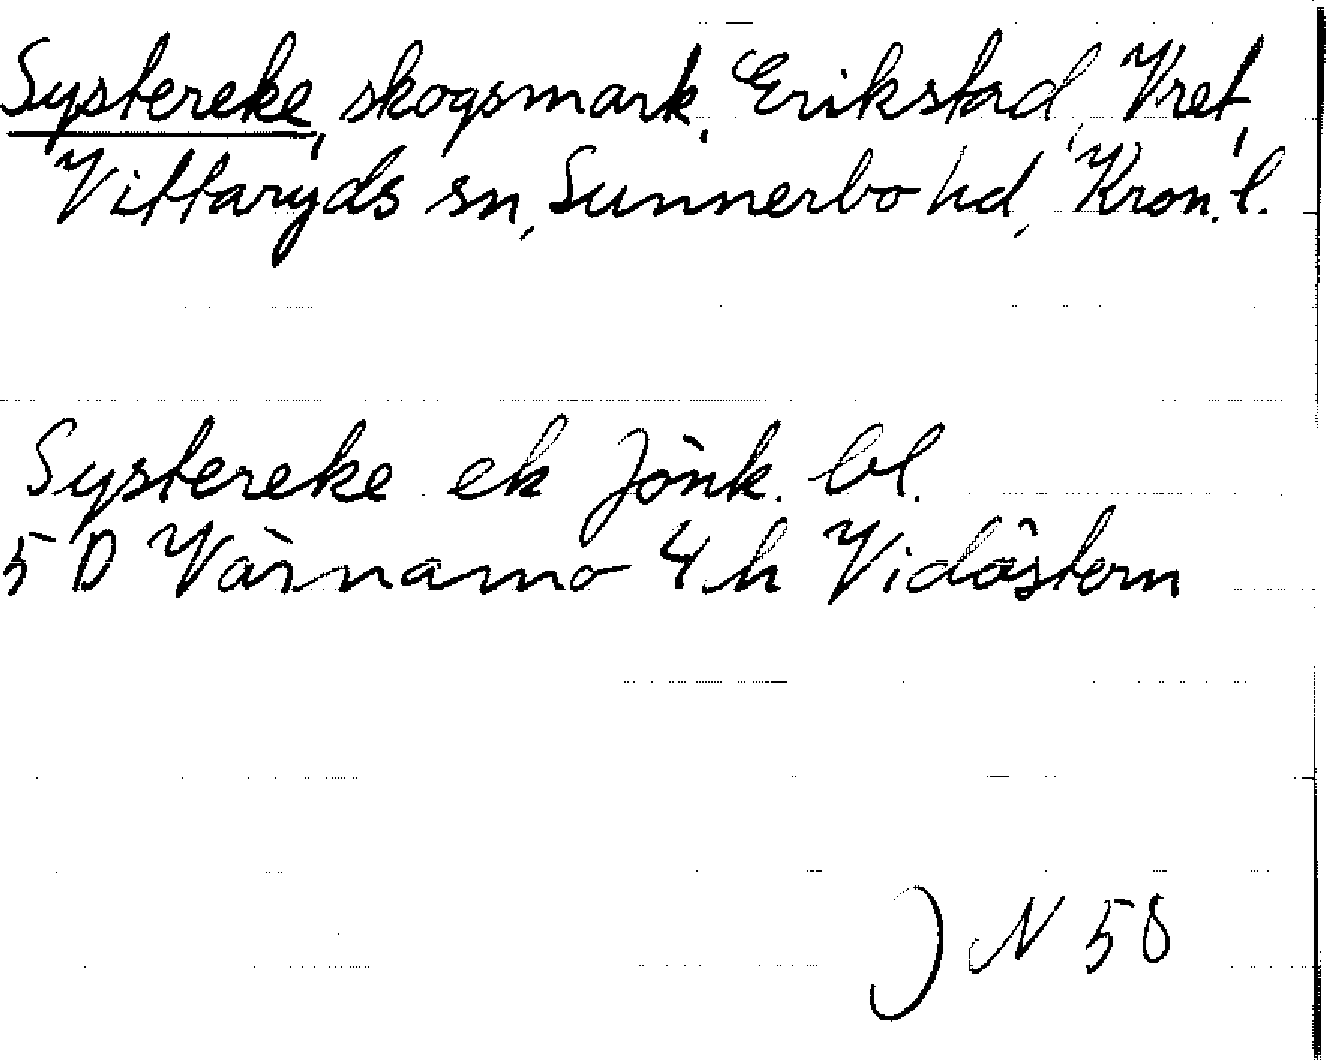 Systereke, skogsmark, Erikstad, Vret,
Vittaryds sn, Sunnerbo hd, Kron. l.
Systereke ek Jönk. bl.
5 D Värnamo 4 h Vidöstern
J N 58